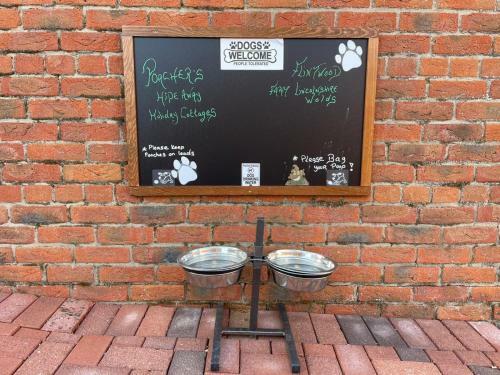 DOGS
WELCOME
PEOPLE TOLERATED
Porcher's
Hideaway
Holiday Cottages
Flintwood
Lincolnshire
Wolds
* Please keep
Pooches on leads
Please Bag
your Poo